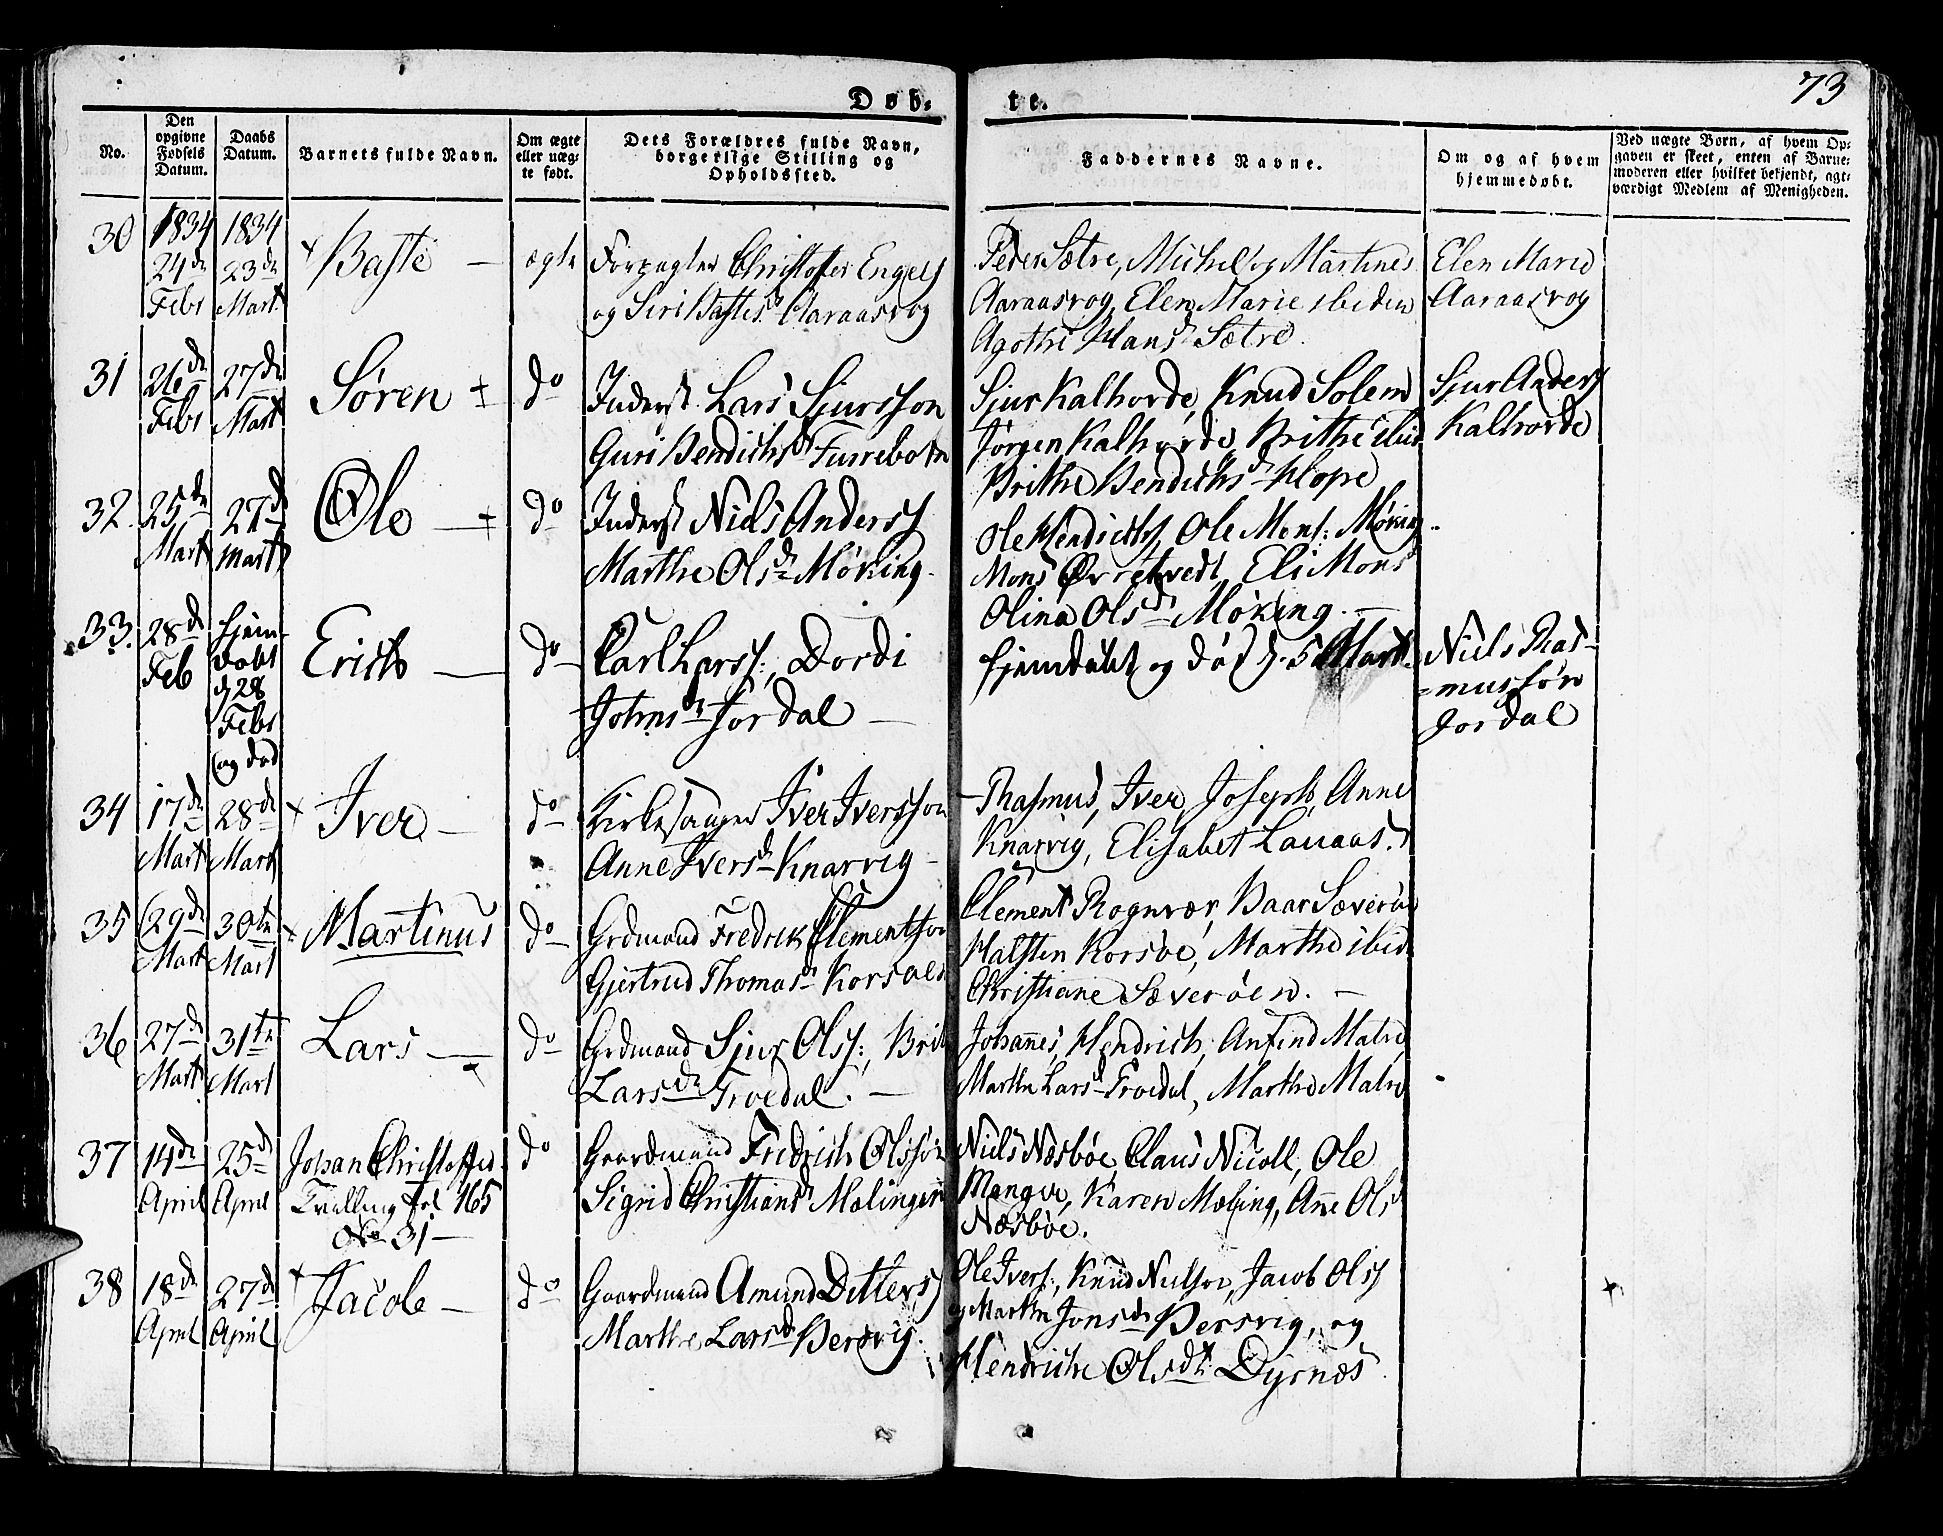 73
Døb-
te.
No.
Den
opgivne
Fødsels
Datum.
Daabs
Datum.
Barnets fulde Navn.
Om ægte
eller uæg-
te født.
Dets Forældres fulde Navn,
borgerlige Stilling og
Opholdssted.
Faddernes Navne.
Om og af hvem
hjemmedøbt.
Ved uægte Børn, af hvem Op-
gaven er skeet, enten af Barne-
moderen eller hvilket bekjendt, agt-
værdigt Medlem af Menigheden.
30
1834
24de
Febr
1834
23de
Mart
Baste
ægte
Forpagter Christoffer Engels
og Siri Bastesd Aaraasvog
Peder Sætre, Michel og Martines
Aaraasvog, Elen Marie ibidem
Agothe Hansd Sætre.
Elen Marie
Aaraasvog
31
26de
Febr
27de
Mart
Søren
do
Inderst Lars Sjursson
Guri Bendichsd Furrebotn
Sjur Kalhovde, Knud Solem
Jørgen Kalhovde, Brithe ibid.
Brithe Bendichsd Hope
Sjur Anders
Kalhovde
32.
25de
Mart
27d
Mart
Ole
do
Inderst Niels Anderss
Marthe Olsd Møking.
Ole Hendichss, Ole Mons: Møking
Mons Øvretvedt, Eli Mons
Olina Olsd Møking.
33.
28d
Feb
hjem-
døbt
d 28
Febr
og død
Erich
do
Carl Larss:, Dordi
Johnsd Jordal
hjemdøbt og død d. 5 Mart.
Niels Ras-
musføn
Jordal
34
17de
Mart
28de
Mart
Iver
do
Kirkesanger Iver Iversson
Anne Iversd Knarvig
Rasmus, Iver, Joseph, Anne
Knarvig, Elisabet Lauaas.
35
29de
Mart
30te
Mart
Martinus
do
Grdmand Fredrik Clementson
Gjertrud Thomasd Korsøen
Clement Rognvær, Baar Sæverøe
Halsten Korsøe, Marthe ibid
Christiane Sæverøen.
36
27de
Mart
31te
Mart
Lars
do
Grdmand Sjur Olss:, Brit
Larsdr Troedal.
Johañes, Hendrich, Anfind Matre
Marthe Larsd Troedal, Marthe Matre
37
14de
April
25d
April
Johan Christoffer
Tvilling Fol 165
No 31
do
Gaardmand Fredrich Olssøn
Sigrid Christiansd Mælingen
Niels Næsbøe, Claus Nicoll, Ole
Manger, Karen Mæling, Añe Olsd
Næsbøe.
38
18de
April
27de
April
Jacob
do
Gaardmand Amund Ditlerss
Marthe Larsd Bersvig.
Ole Iverss:, Knud Nielsøn, Jacob Olss
og Marthe Jonsdr Bersvig, og
Hendriche Olsdr Dyrnæs